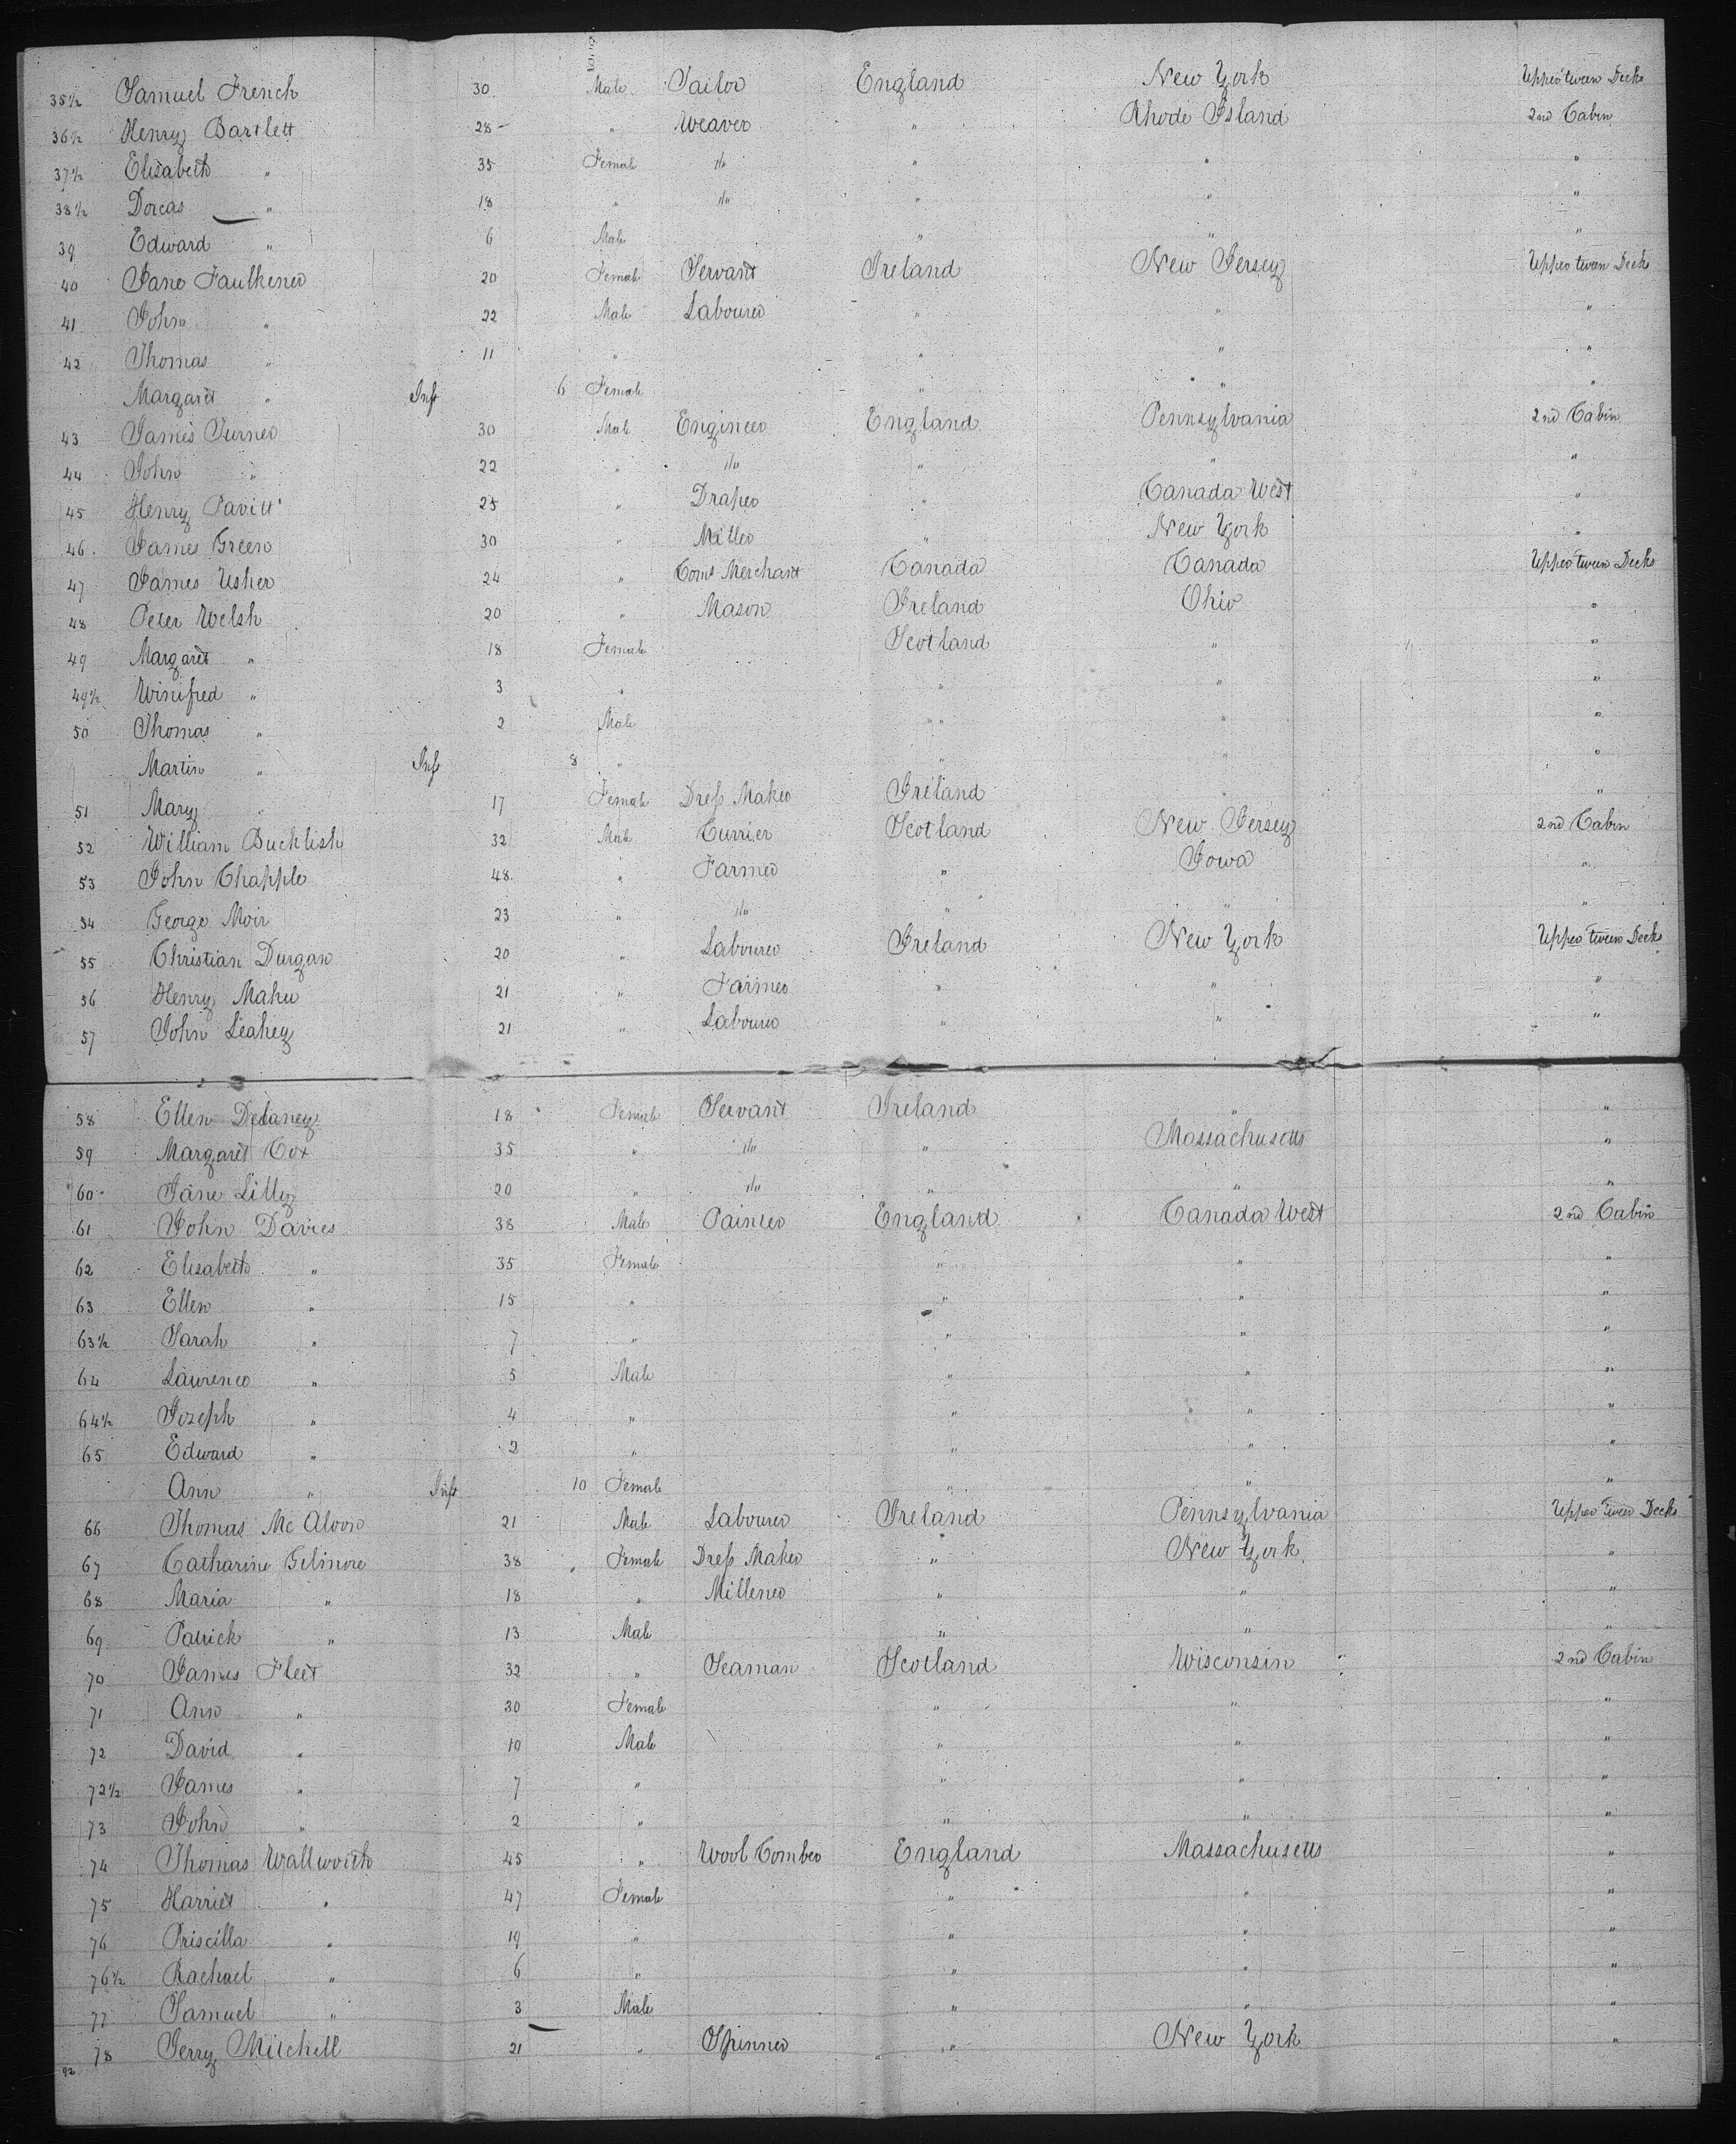 35½ Samuel French 30 Male Tailor England New York Upper tween Decks
36½ Henry Bartlett 28 " Weaver " Rhode Island 2nd Cabin
37½ Elisabeth " 35 Female do " " "
38½ Dorcas " 18 " do " " "
39 Edward " 6 Male " " "
40 Jane Faulkener 20 Female Servant Ireland New Jersey Upper tween Decks
41 John " 22 Male Labourer " " "
42 Thomas " 11 " " " "
Margaret " Inft 6 Female " " "
43 James Turner 30 Male Engineer England Pennsylvania 2nd Cabin
44 John " 22 " do " " "
45 Henry Pavitt 25 " Draper " Canada West "
46 James Green 30 " Miller " New York "
47 James Usher 24 " Coms Merchant Canada Canada Upper tween Decks
48 Peter Welsh 20 " Mason Ireland Ohio "
49 Margaret " 18 Female Scotland " "
49½ Winifred " 3 " " " "
50 Thomas " 2 Male " " "
Martin " Inft 8 " " " "
51 Mary " 17 Female Dress Maker Ireland " "
52 William Bucklish 32 Male Currier Scotland New Jersey 2nd Cabin
53 John Chapple 48 " Farmer " Iowa "
54 George Moir 23 " do " " "
55 Christian Durgan 20 " Labourer Ireland New York Upper tween Decks
56 Henry Maher 21 " Farmer " " "
57 John Leahey 21 " Labourer " " "
58 Ellen Delaney 18 Female Servant Ireland " "
59 Margaret Cox 35 " do " Massachusetts "
60 Jane Lilly 20 " do " " "
61 John Davies 38 Male Painter England Canada West 2nd Cabin
62 Elisabeth " 35 Female " " "
63 Ellen " 15 " " " "
63½ Sarah " 7 " " " "
64 Lawrence " 5 Male " " "
64½ Joseph " 4 " " " "
65 Edward " 2 " " " "
Ann " Inft 10 Female " " "
66 Thomas Mc Aloon 21 Male Labourer Ireland Pennsylvania Upper tween Decks
67 Catharine Gilmore 38 Female Dress Maker " New York "
68 Maria " 18 " Millener " " "
69 Patrick " 13 Male " " "
70 James Fleet 32 " Seaman Scotland Wisconsin 2nd Cabin
71 Ann " 30 Female " " "
72 David " 10 Male " " "
72½ James " 7 " " " "
73 John " 2 " " " "
74 Thomas Wallworth 45 " Wool Comber England Massachusetts "
75 Harriet " 47 Female " " "
76 Priscilla " 19 " " " "
76½ Rachael " 6 " " " "
77 Samuel " 3 Male " " "
78 Jerry Mitchell 21 " Spinner " New York "
92